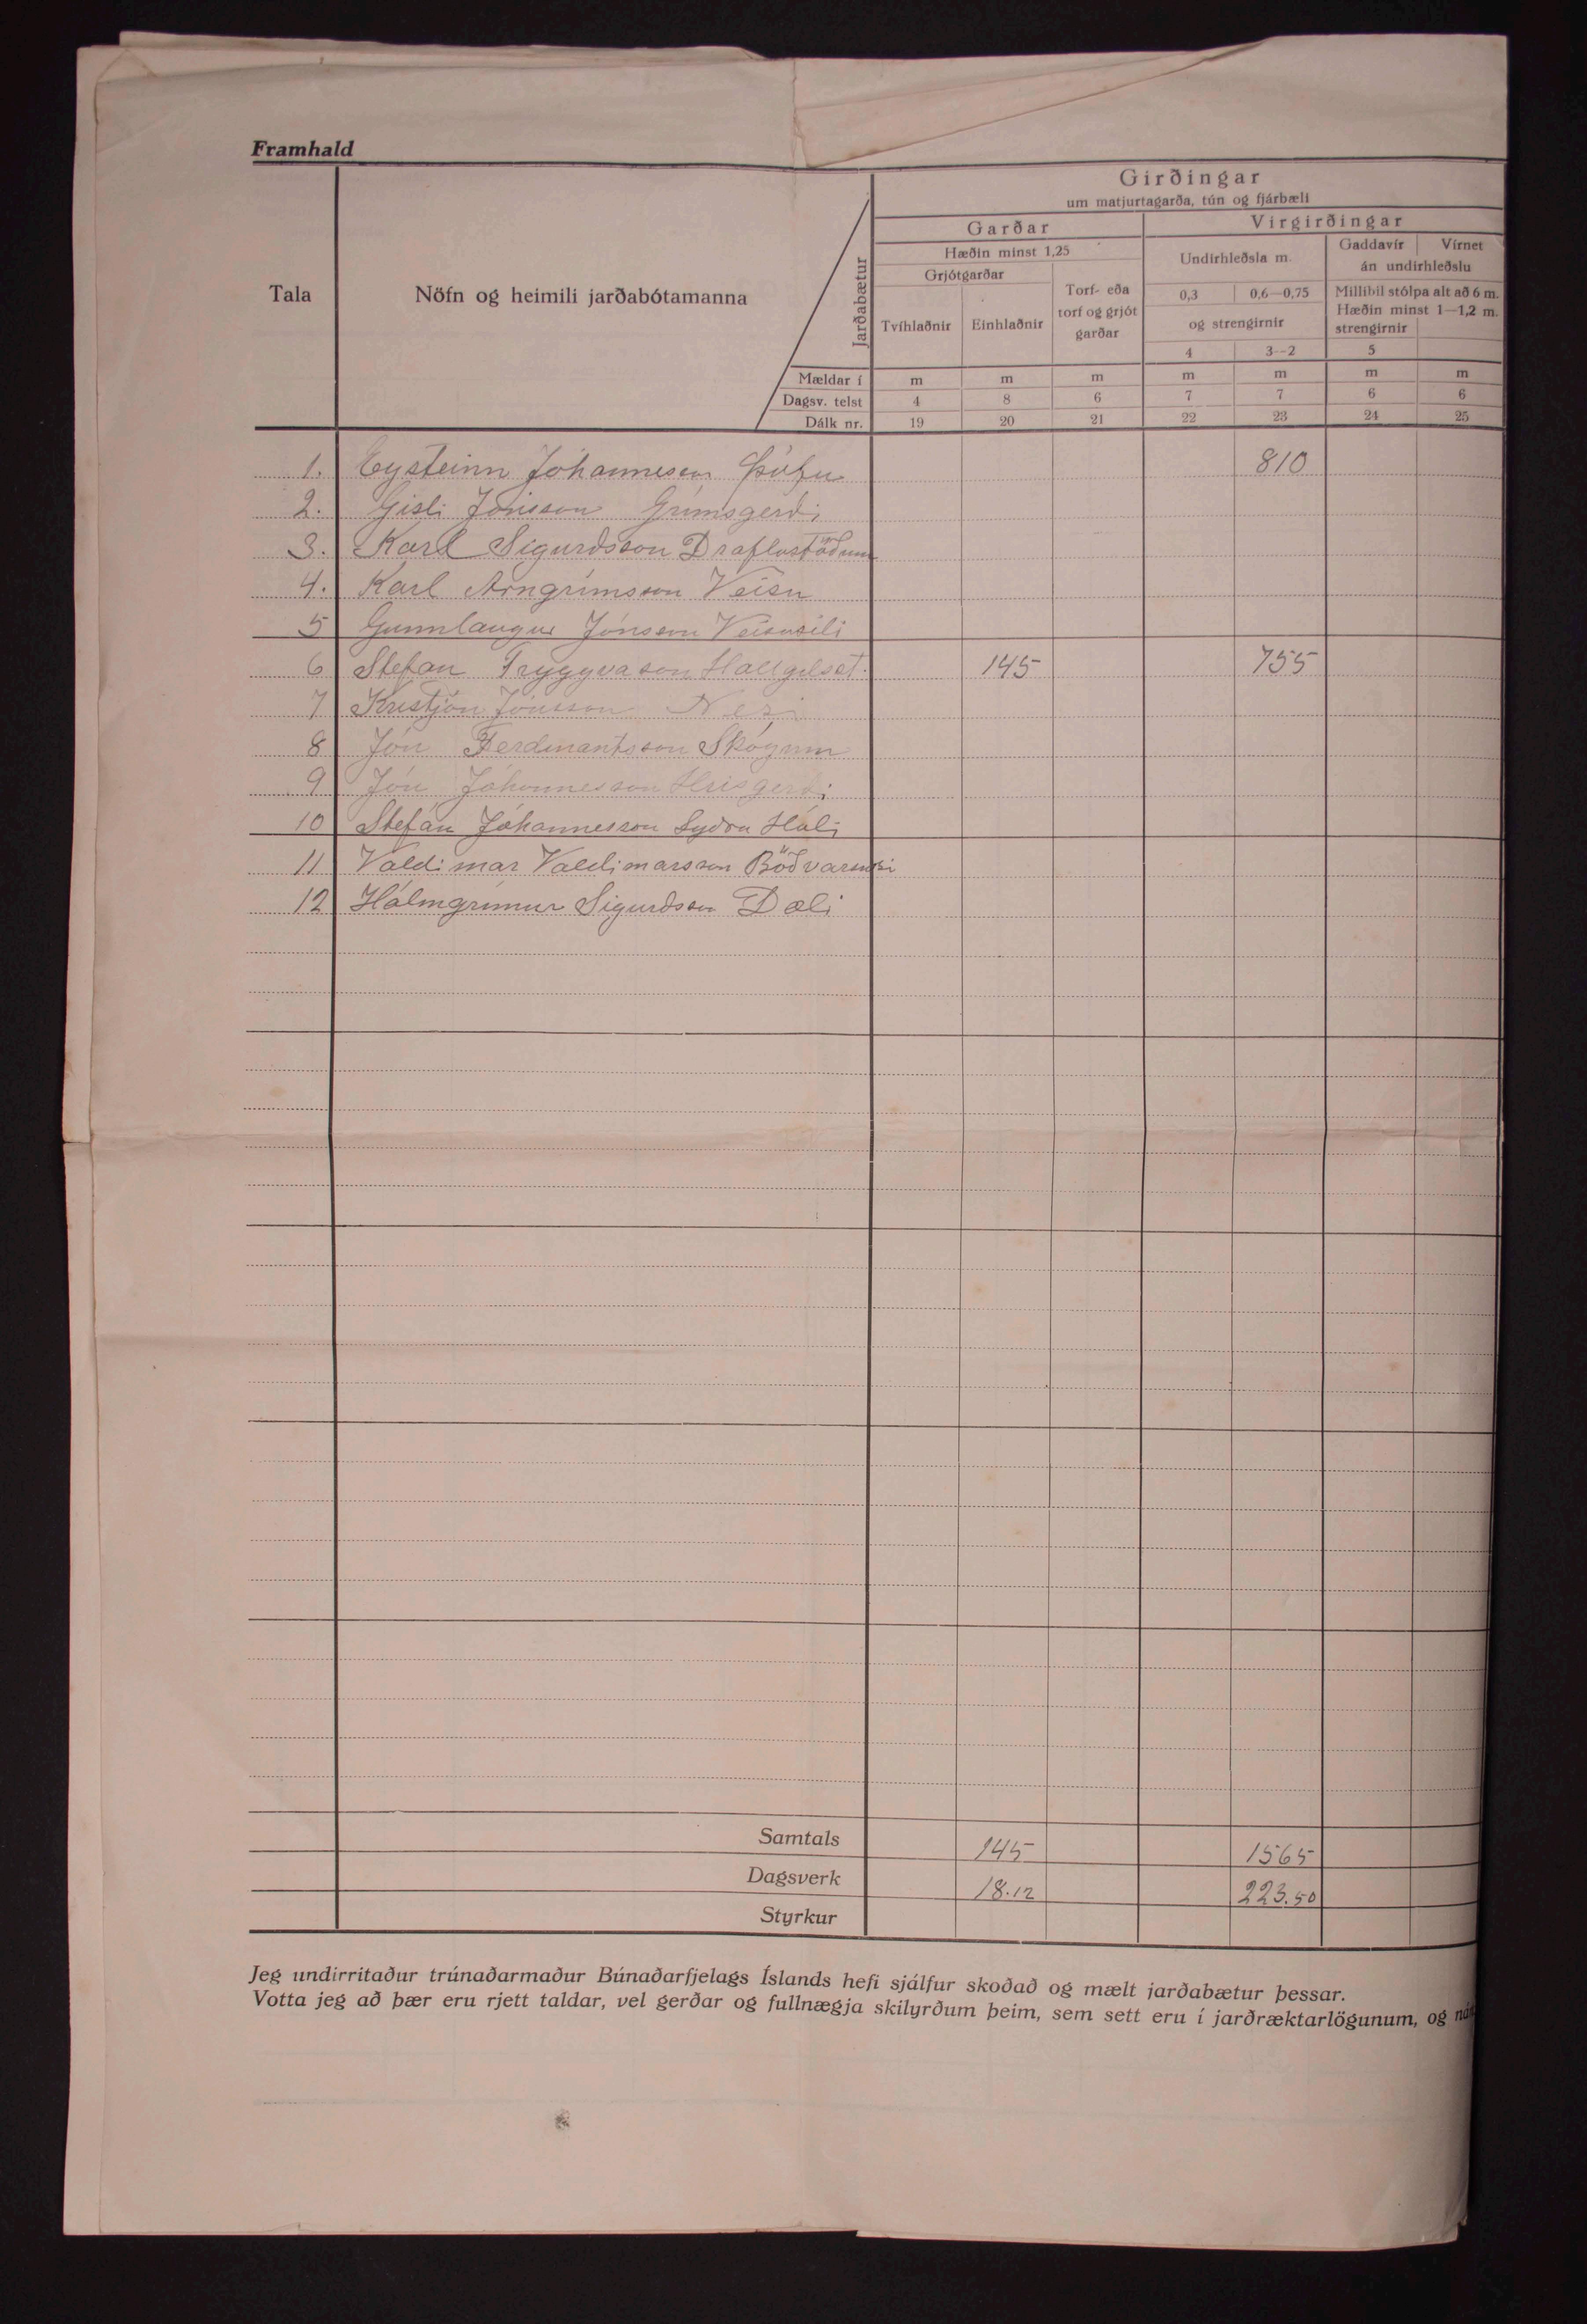 Framhald
Tala
Nöfn og heimili jarðabótamanna
Jarðabætur
Girðingar
um matjurtagarða, tún og fjárbæli
Garðar
Virgirðingar
Hæðin minst 1,25
Undirhleðsla m.
Gaddavír
Vírnet
án undirhleðslu
Grjótgarðar
Torf- eða
torf og grjót
garðar
Tvíhlaðnir
Einhlaðnir
0,3
0,6—0,75
og strengirnir
Millibil stólpa alt að 6 m.
Hæðin minst 1—1,2 m.
strengirnir
4
3--2
5
Mældar í m m m m m m m
Dagsv. telst 4 8 6 7 7 6 6
Dálk nr. 19 20 21 22 23 24 25
1. Eysteinn Jóhannesson Þúfu 810
2. Gisli Jónsson Grímsgerði
3. Karl Sigurdsson Draflastöðum
4. Karl Arngrímsson Veisu
5 Gunnlaugur Jónsson Veisuseli
6 Stefan Tryggvason Hallgilsst. 145 755
7 Kristján Jónsson Nesi
8 Jón Ferdinantsson Skógum
9 Jón Jóhannesson Hrisgerði
10 Stefán Jóhannesson Sydra Hóli
11 Valdimar Valdimarsson Böðvarsnesi
12 Hólmgrímur Sigurdsson Dæli
Samtals 145 1565
Dagsverk 18.12 223.50
Styrkur
Jeg undirritaður trúnaðarmaður Búnaðarfjelags Íslands hefi sjálfur skoðað og mælt jarðabætur þessar.
Votta jeg að þær eru rjett taldar, vel gerðar og fullnægja skilyrðum þeim, sem sett eru í jarðræktarlögunum, og